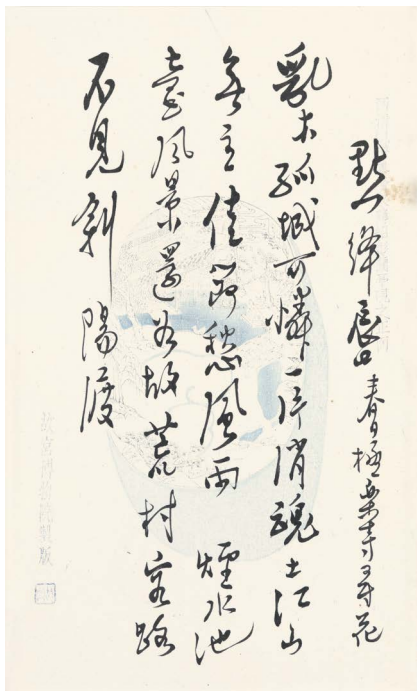 點絳唇 春日極樂寺尋花
亂木孤城可憐一片消魂土江山
無主佳節愁風雨 煙水池
臺風景還若故荒村客路
不見斜陽渡
故宮博物院製版